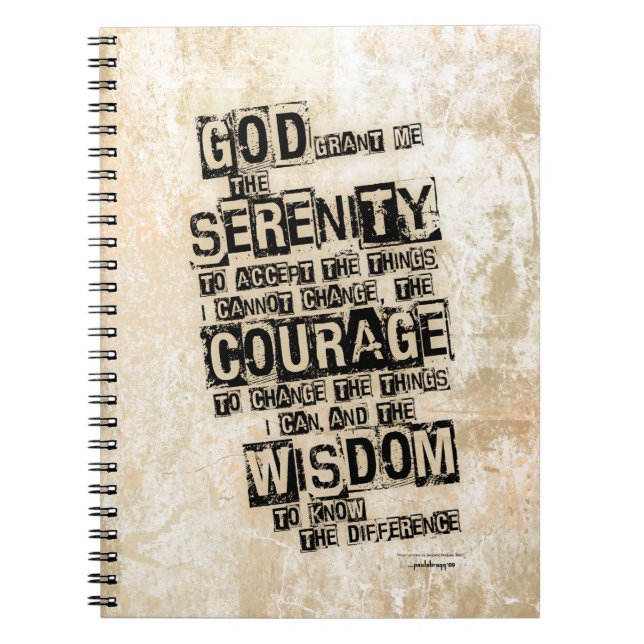 GOD GRANT ME
THE
SERENITY
TO ACCEPT THE THINGS
I CANNOT CHANGE, THE
COURAGE
TO CHANGE THE THINGS
I CAN, AND THE
WISDOM
TO KNOW
THE DIFFERENCE
...paulabragg'09